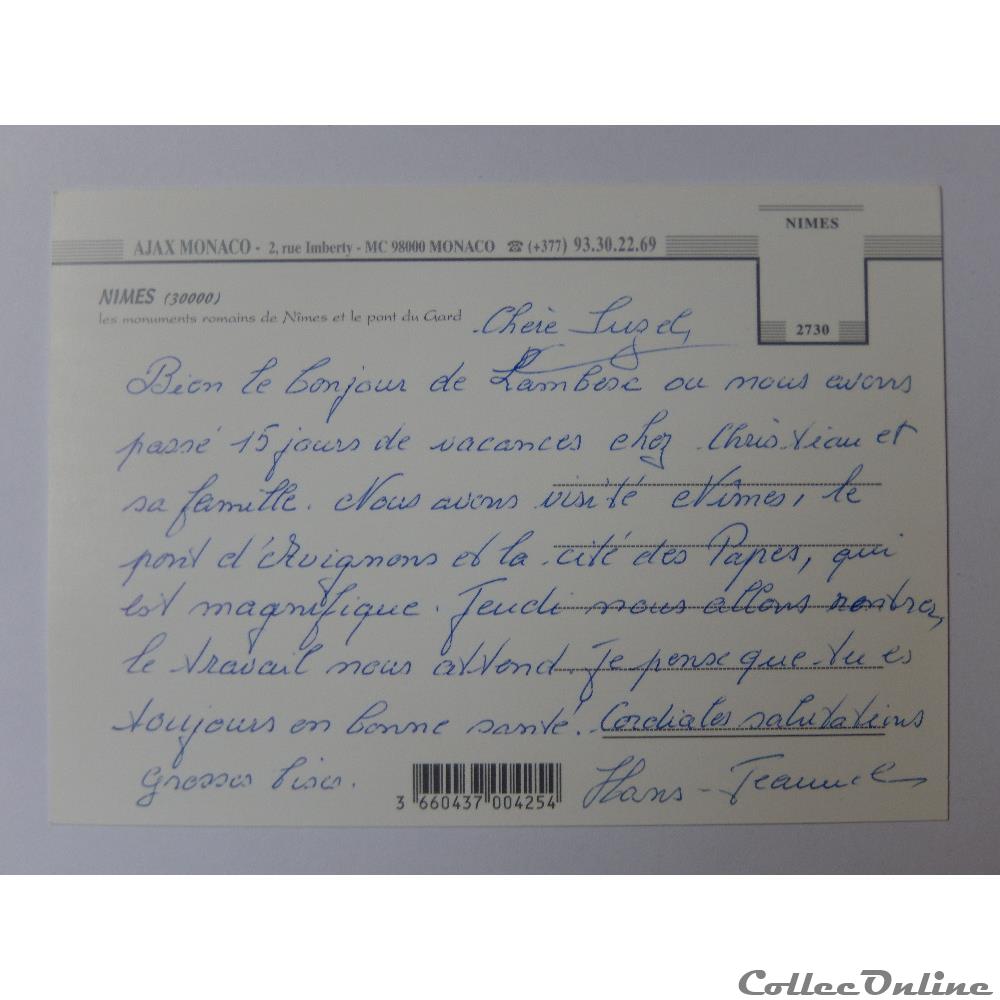 NIMES
AJAX MONACO - 2, rue Imberty - MC 98000 MONACO ☎ (+377) 93.30.22.69
NIMES (30000)
les monuments romains de Nîmes et le pont du Gard
2730
Chère Suzel,
Bien le bonjour de Lambesc ou nous avons
passé 15 jours de vacances chez Christian et
sa famille. Nous avons visité Nîmes, le
pont d'Avignons et la cité des Papes, qui
est magnifique. Jeudi nous allons rentrer,
le travail nous attend. Je pense que tu es
toujours en bonne santé. Cordiales salutations
Grosses bises. Hans - Jeanne
3 660437 004254
CollecOnline